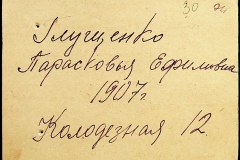 30
Глущенко
Парасковья Ефимивна
1907 г.
Колодезная 12